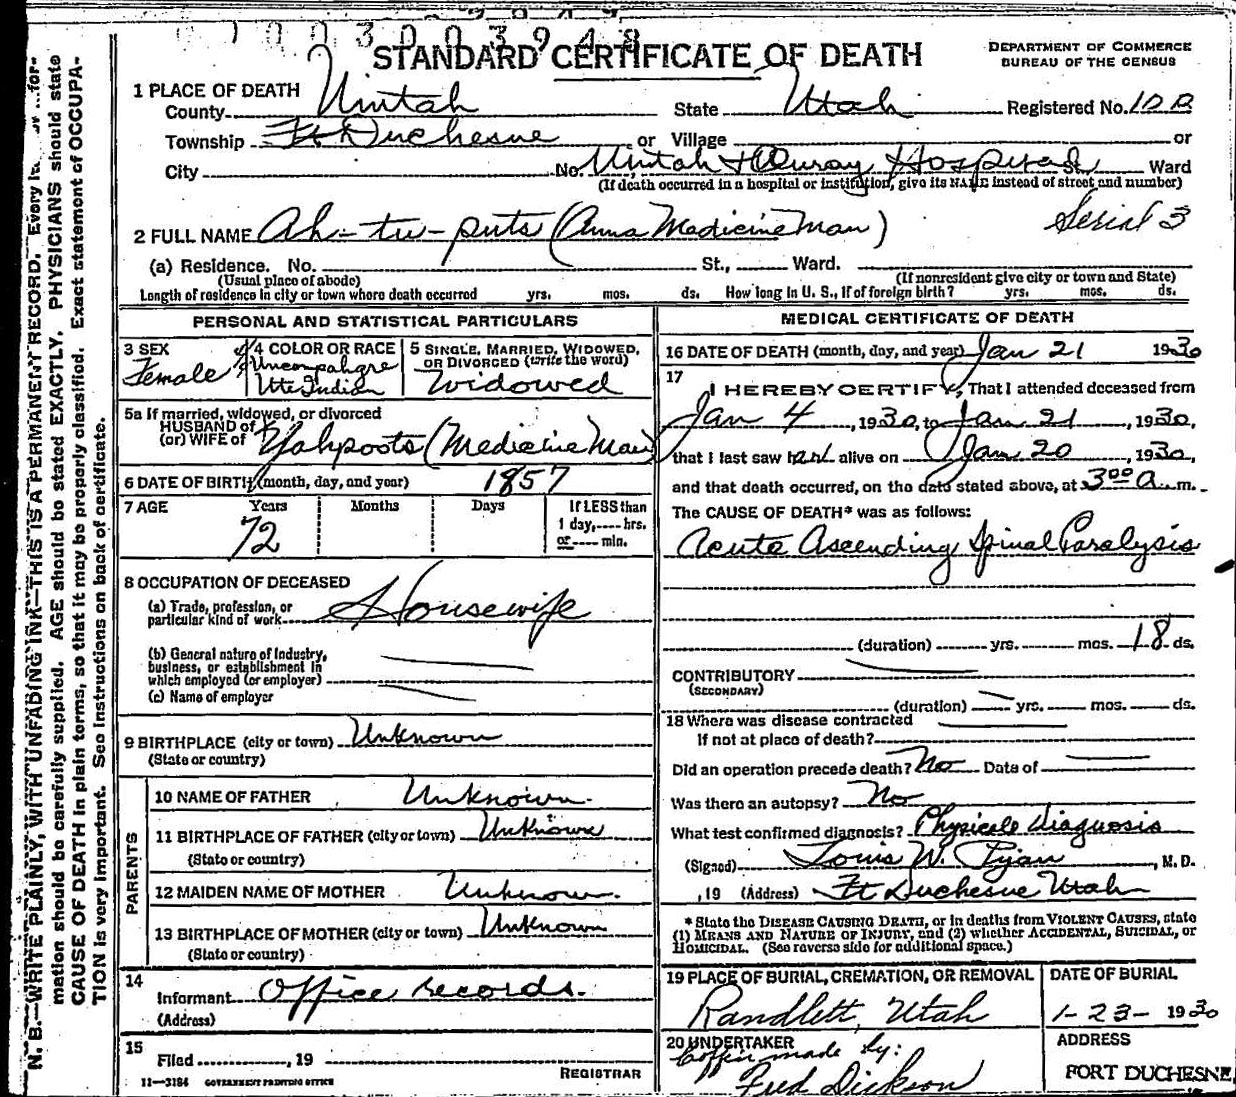 STANDARD CERTIFICATE OF DEATH
DEPARTMENT OF COMMERCE
BUREAU OF THE CENSUS
1 PLACE OF DEATH
County Uintah State Utah Registered No.
Township Ft Duchesne or Village or
City No. Uintah & Ouray Hospital St. Ward
(If death occurred in a hospital or institution, give its NAME instead of street and number)
Serial 3
2 FULL NAME Ah-tu-puts (Anna Medicine Man)
(a) Residence. No. St., Ward.
(Usual place of abode) (If nonresident give city or town and State)
Length of residence in city or town where death occurred yrs. mos. ds. How long in U. S., if of foreign birth? yrs. mos. ds.
PERSONAL AND STATISTICAL PARTICULARS
3 SEX 4 COLOR OR RACE 5 SINGLE, MARRIED, WIDOWED, OR DIVORCED (write the word)
Female Uncompahgre Ute Indian Widowed
5a If married, widowed, or divorced
HUSBAND of
(or) WIFE of Yahpoots (Medicine Man)
6 DATE OF BIRTH (month, day, and year) 1857
7 AGE Years Months Days If LESS than
72 1 day, ---- hrs.
or ---- min.
8 OCCUPATION OF DECEASED
(a) Trade, profession, or
particular kind of work Housewife
(b) General nature of Industry,
business, or establishment in
which employed (or employer)
(c) Name of employer
9 BIRTHPLACE (city or town) Unknown
(State or country)
PARENTS
10 NAME OF FATHER Unknown
11 BIRTHPLACE OF FATHER (city or town) Unknown
(State or country)
12 MAIDEN NAME OF MOTHER Unknown
13 BIRTHPLACE OF MOTHER (city or town) Unknown
(State or country)
14
Informant Office records.
(Address)
15
Filed , 19
REGISTRAR
11—3184 GOVERNMENT PRINTING OFFICE
MEDICAL CERTIFICATE OF DEATH
16 DATE OF DEATH (month, day, and year) Jan 21 1930
17
I HEREBY CERTIFY, That I attended deceased from
Jan 4, 1930, to Jan 21, 1930,
that I last saw her alive on Jan 20, 1930,
and that death occurred, on the date stated above, at 3:00 a. m.
The CAUSE OF DEATH* was as follows:
Acute Ascending Spinal Paralysis
(duration) yrs. mos. 18 ds.
CONTRIBUTORY
(SECONDARY)
(duration) yrs. mos. ds.
18 Where was disease contracted
If not at place of death?
Did an operation precede death? No Date of
Was there an autopsy? No
What test confirmed diagnosis? Physical Diagnosis
(Signed) Louis W. , M. D.
, 19 (Address) Ft Duchesne Utah
* State the DISEASE CAUSING DEATH, or in deaths from VIOLENT CAUSES, state
(1) MEANS AND NATURE OF INJURY, and (2) whether ACCIDENTAL, SUICIDAL, or
HOMICIDAL. (See reverse side for additional space.)
19 PLACE OF BURIAL, CREMATION, OR REMOVAL DATE OF BURIAL
Randlett, Utah 1-23- 1930
20 UNDERTAKER ADDRESS
Coffin made by:
Fred Dickson FORT DUCHESNE,
N. B.—WRITE PLAINLY, WITH UNFADING INK—THIS IS A PERMANENT RECORD. Every
mation should be carefully supplied. AGE should be stated EXACTLY. PHYSICIANS should state
CAUSE OF DEATH in plain terms, so that it may be properly classified. Exact statement of OCCUPA-
TION is very important. See instructions on back of certificate.